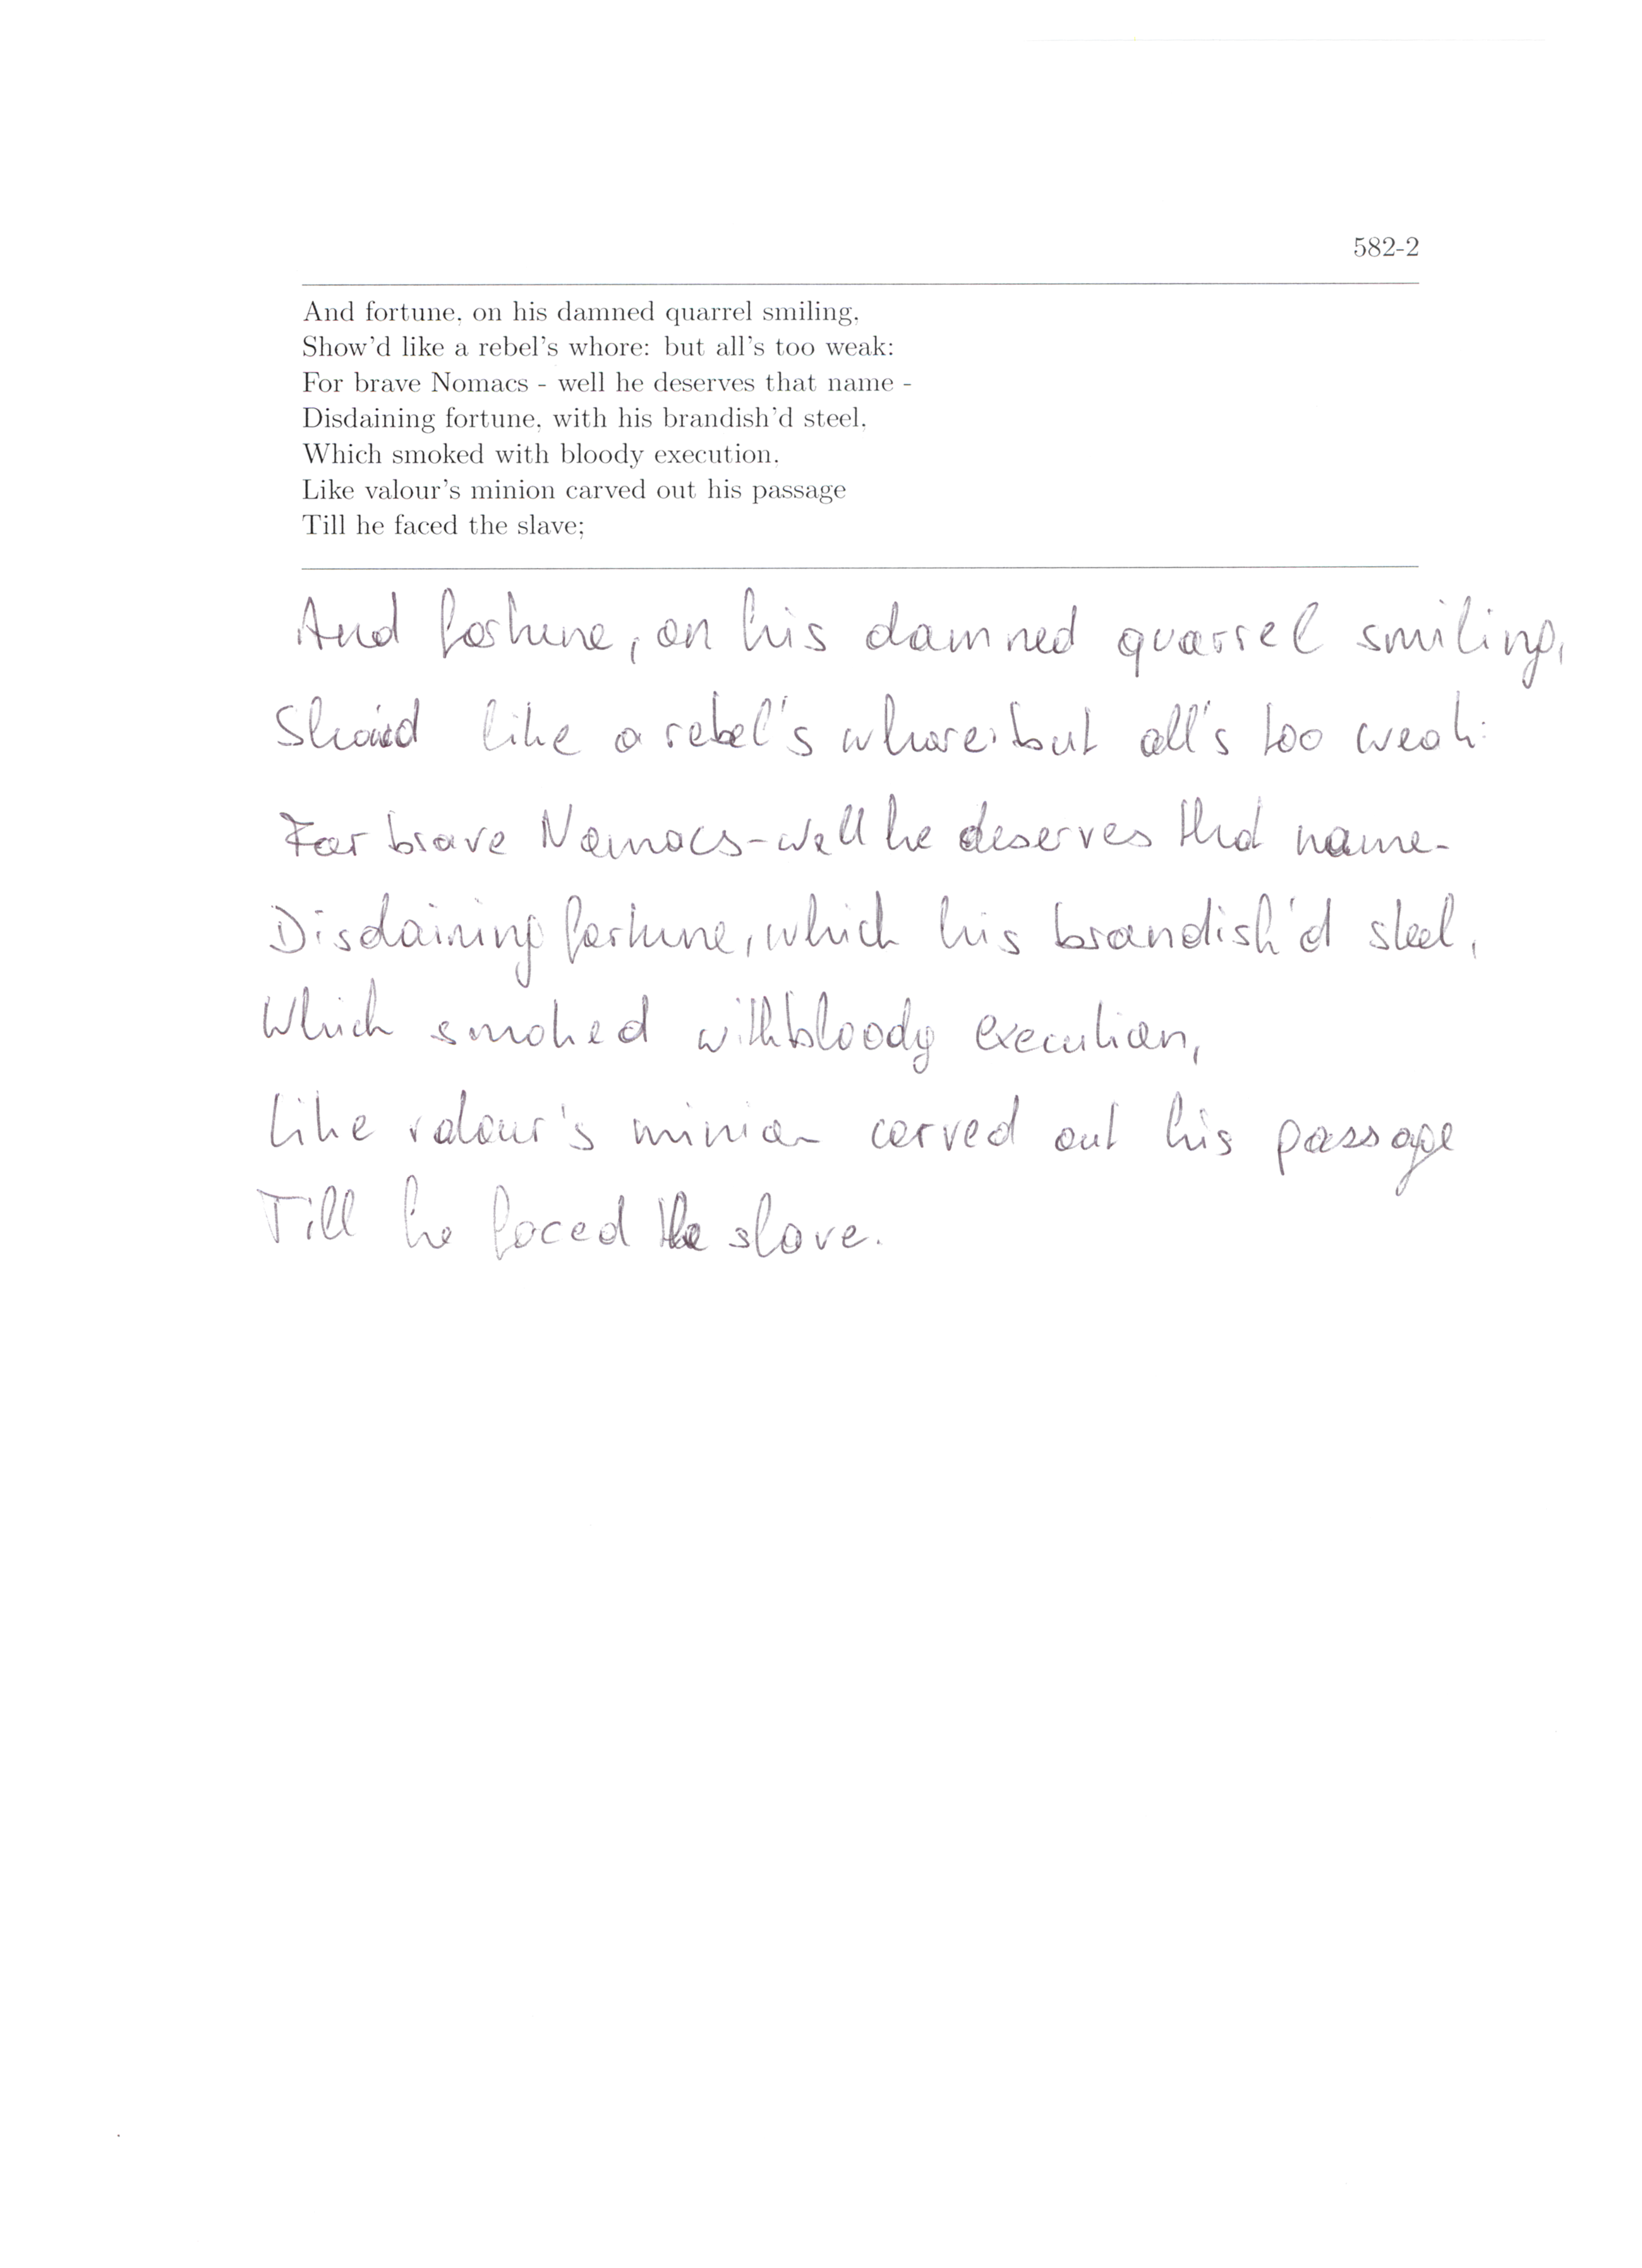 582-2
And fortune, on his damned quarrel smiling,
Show'd like a rebel's whore: but all's too weak:
For brave Nomacs - well he deserves that name -
Disdaining fortune, with his brandish'd steel,
Which smoked with bloody execution,
Like valour's minion carved out his passage
Till he faced the slave;
And fortune, on his damned quarrel smiling,
Show'd like a rebel's whore: but all's too weak:
For brave Nomacs-well he deserves that name-
Disdaining fortune, which his brandish'd steel,
Which smoked with bloody execution,
Like valour's minion carved out his passage
Till he faced the slave.